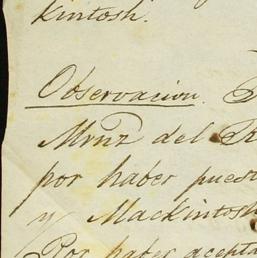 kintosh.
Observacion.
Mrnz del R
por haber puest
y Mackintosh
Por haber acepta